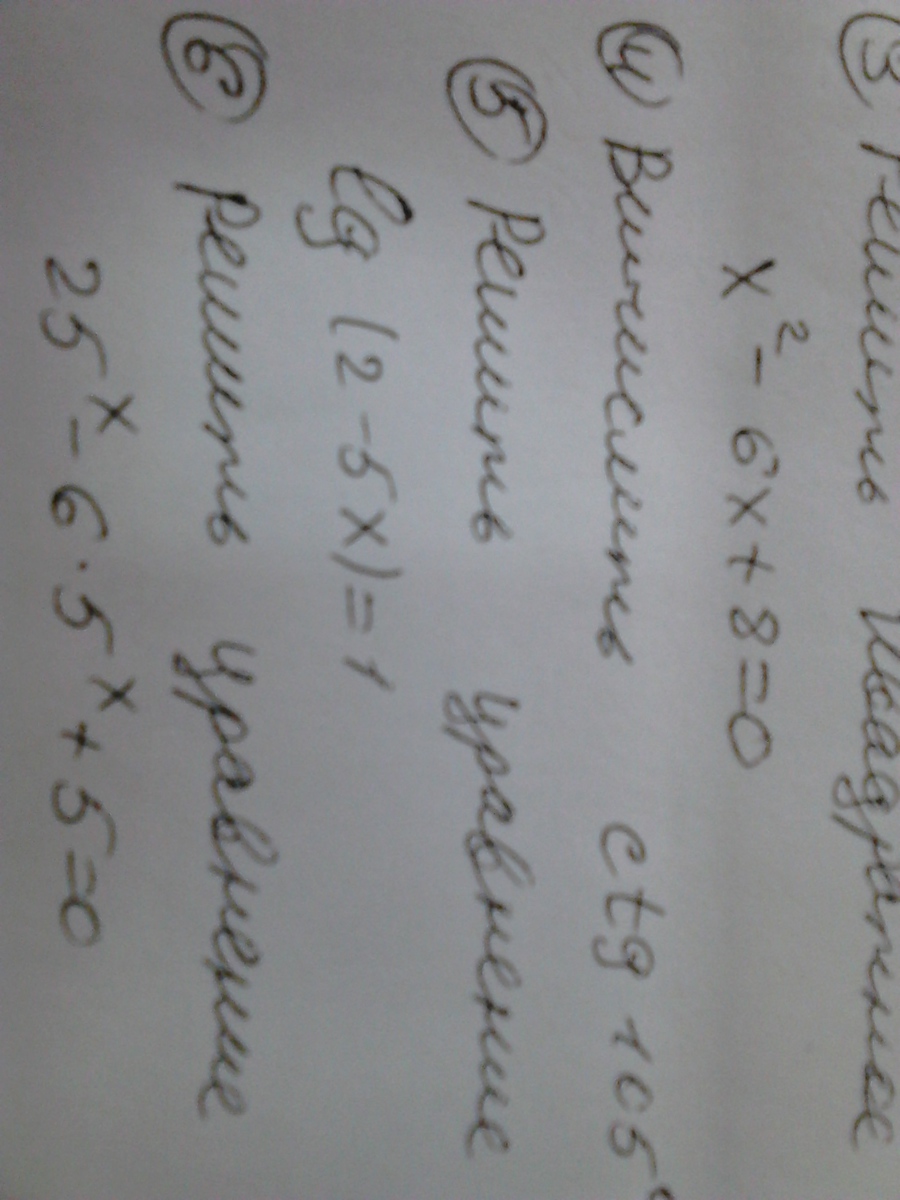 3 Решить квадратное
x² - 6x + 8 = 0
4 Вычислить ctg 105°
5 Решить уравнение
lg (2 - 5x) = 1
6 Решить уравнение
25ˣ - 6 · 5ˣ + 5 = 0